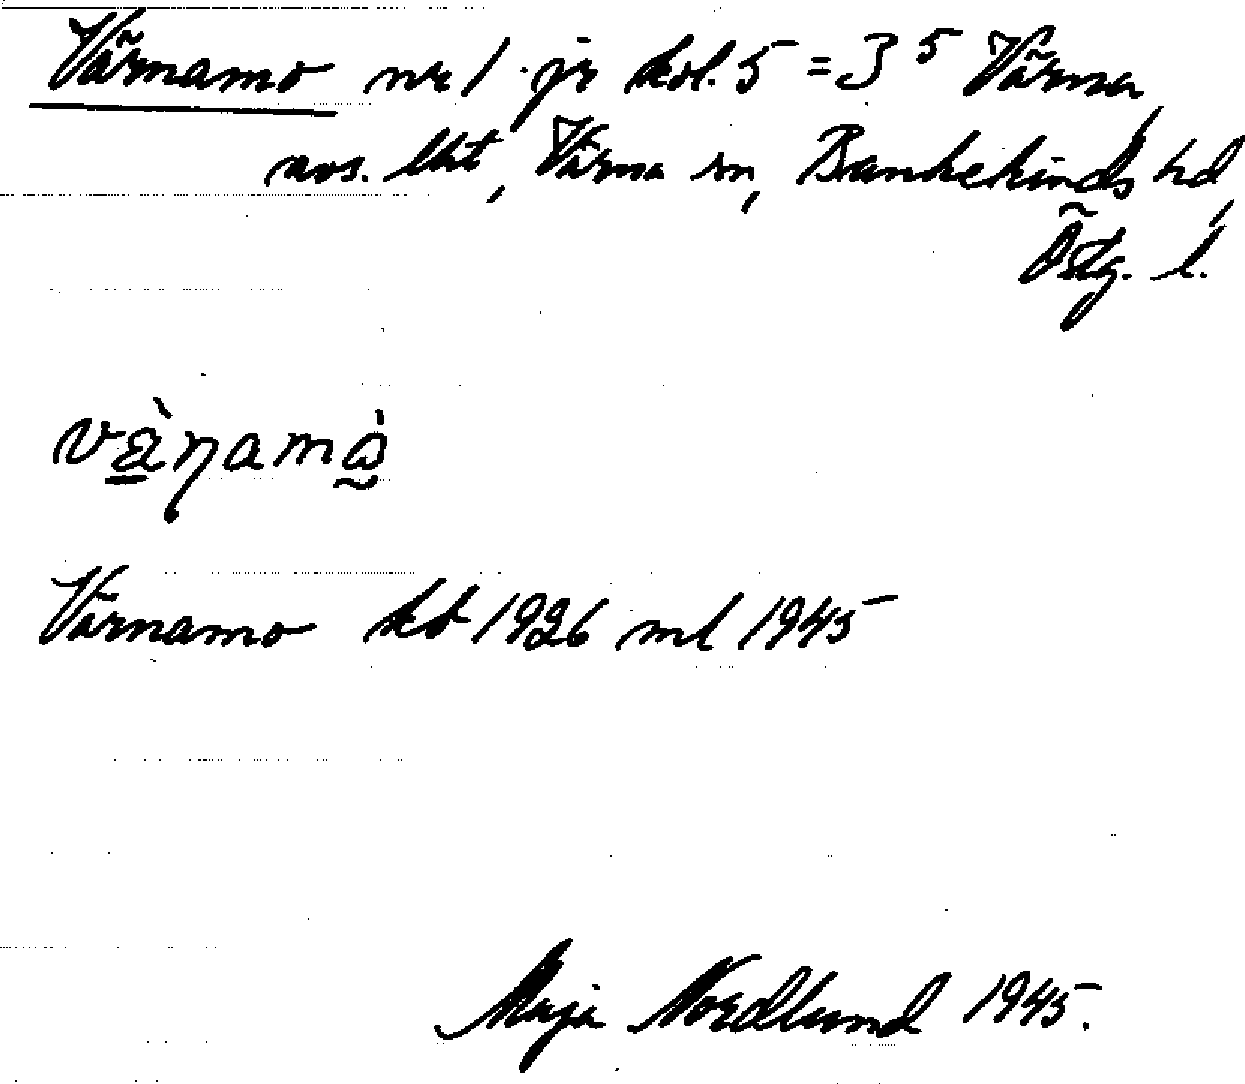 Värnamo nr 1 jr kol. 5 = 3⁵ Värna,
avs. lht, Värna sn, Bankekinds hd
Östg. l.
vä̀ṇamò̰
Värnamo kb 1926 ml 1945
Maja Nordlund 1945.